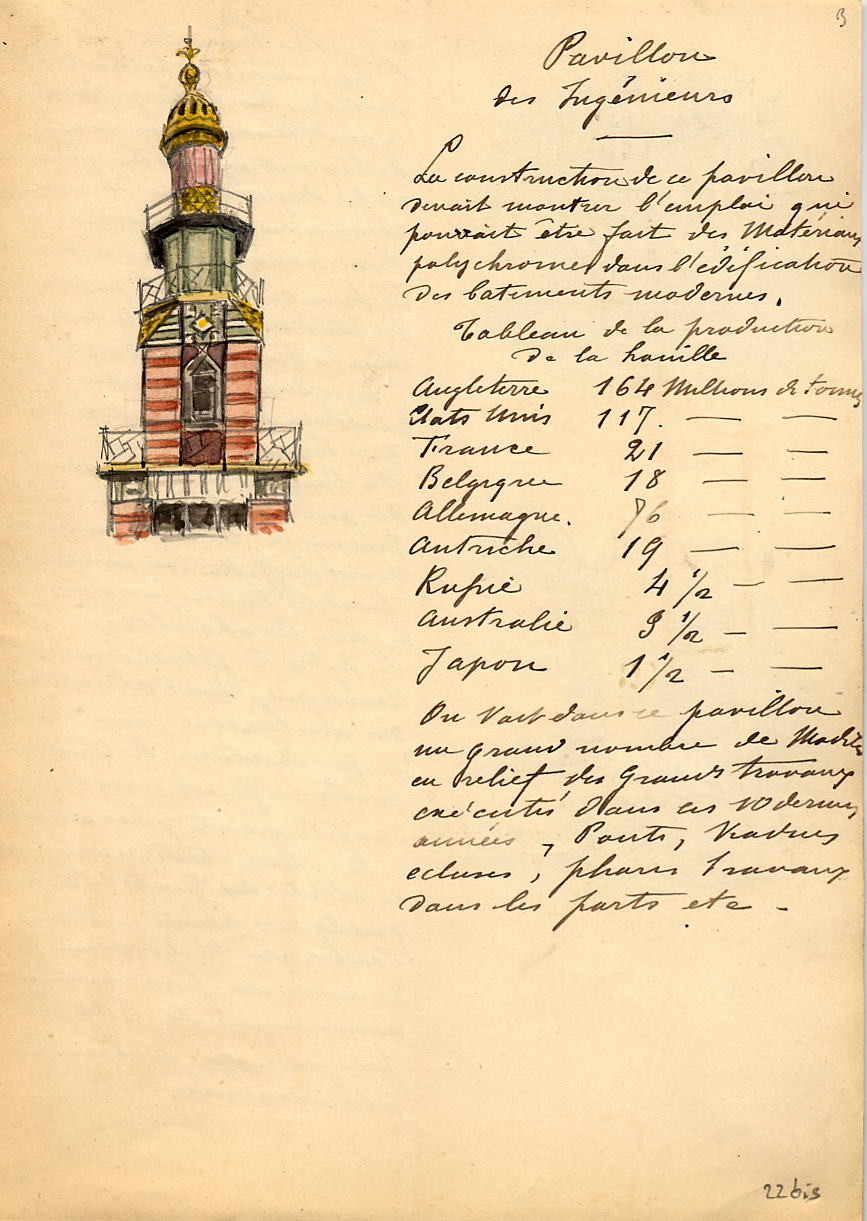 B
Pavillon
des Ingénieurs
La construction de ce pavillon
devait montrer l'emploi qui
pouvait être fait des Matériaux
polychromes dans l'édification
des batiments modernes.
Tableau de la production
de la houille
Angleterre 164 Millions de tonnes
Etats Unis 117. — —
France 21 — —
Belgique 18 — —
Allemagne. 76 — —
Autriche 19 — —
Russie 4 1/2 — —
Australie 3 1/2 — —
Japon 1 1/2 — —
On voit dans ce pavillon
un grand nombre de Modèles
en relief des Grands travaux
exécutés dans ces 10 dernières
années, Ponts, Viaducs
ecluses, phares travaux
dans les ports etc -
22 bis